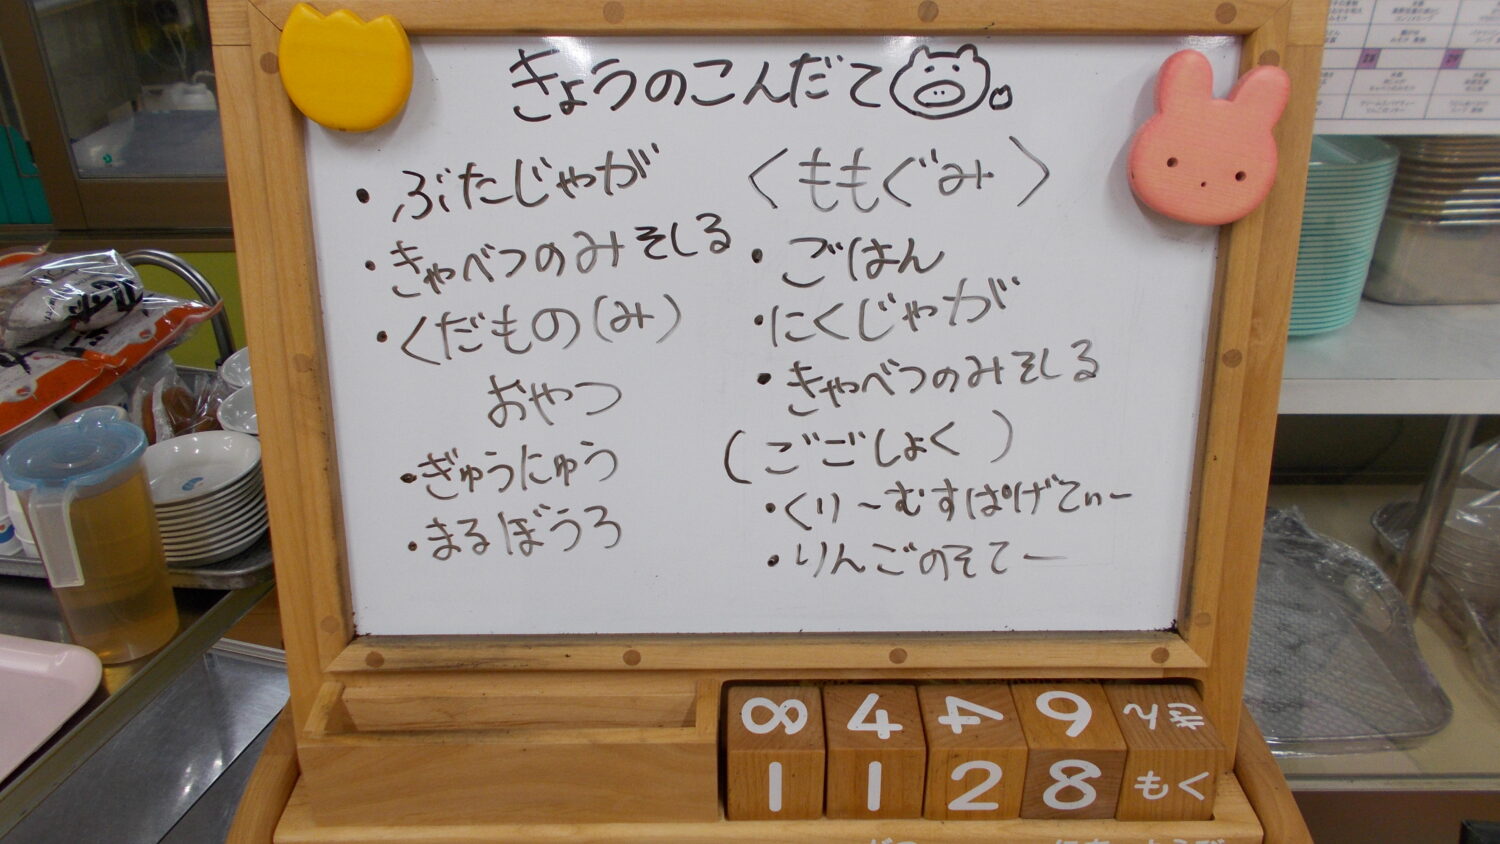 きょうのこんだて
・ぶたじゃが
・きゃべつのみそしる
・くだもの(み)
おやつ
・ぎゅうにゅう
・まるぼうろ
〈ももぐみ〉
・ごはん
・にくじゃが
・きゃべつのみそしる
(ごごしょく)
・くりーむすぱげてぃー
・りんごのそてー
8 4 4 6 きん
1 1 2 8 もく
28 29